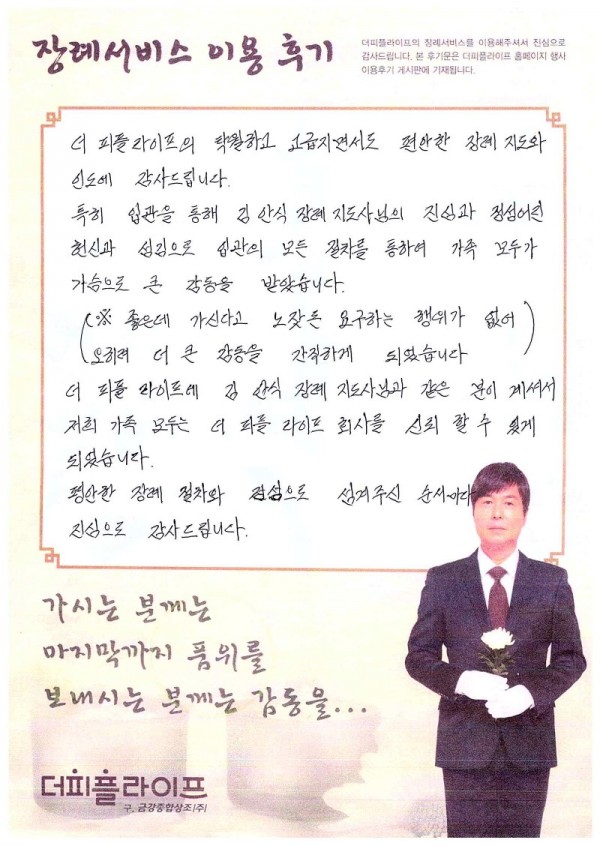 장례서비스 이용 후기
더피플라이프의 장례서비스를 이용해주셔서 진심으로
감사드립니다. 본 후기문은 더피플라이프 홈페이지 행사
이용후기 게시판에 기재됩니다.
더 피플 라이프의 탁월하고 고급지면서도 편안한 장례 지도와
인도에 감사드립니다.
특히 입관을 통해 김 안식 장례 지도사님의 진심과 정성어린
헌신과 섬김으로 입관의 모든 절차를 통하여 가족 모두가
가슴으로 큰 감동을 받았습니다.
(※ 좋은데 가신다고 노잣돈 요구하는 행위가 없어
오히려 더 큰 감동을 간직하게 되었습니다)
더 피플 라이프에 김 안식 장례 지도사님과 같은 분이 계셔서
저희 가족 모두는 더 피플 라이프 회사를 신뢰 할 수 있게
되었습니다.
평안한 장례 절차와 진심으로 섬겨주신 순서마다
진심으로 감사드립니다.
가시는 분께는
마지막까지 품위를
보내시는 분께는 감동을...
더피플라이프
구. 금강종합상조(주)